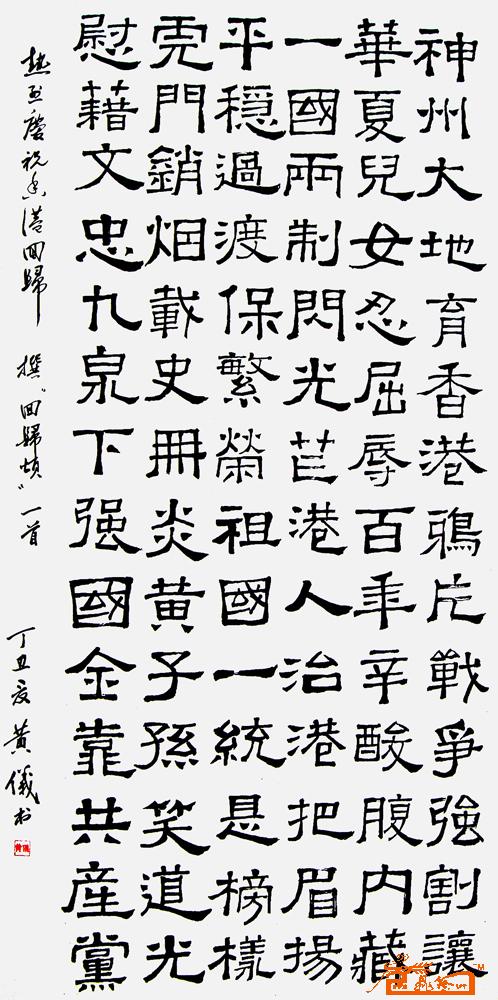 神州大地育香港鴉片戰爭強割讓
華夏兒女忍屈辱百年辛酸腹内藏
一國兩制閃光芒港人治港把眉揚
平穩過渡保繁榮祖國一統是榜樣
虎門銷烟載史冊炎黃子孫笑道光
慰藉文忠九泉下强國金靠共產黨
熱烈慶祝香港回歸 撰"回歸頌"一首 丁丑夏黃儀書